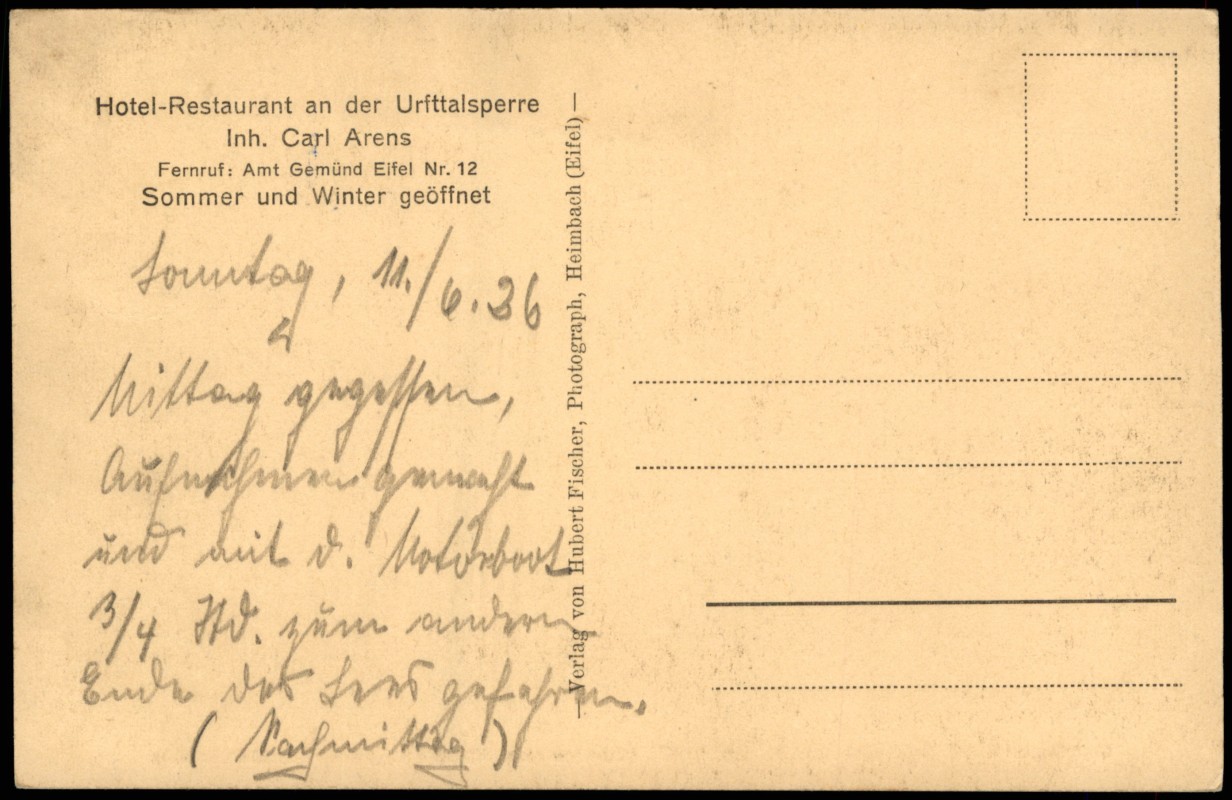 Hotel-Restaurant an der Urfttalsperre
Inh. Carl Arens
Fernruf: Amt Gemünd Eifel Nr. 12
Sommer und Winter geöffnet
Sonntag, 11./6.36
Mittag gegessen,
Aufnahmen gemacht
und mit d. Motorboot
3/4 Std. zum andern
Ende des Sees gefahren.
(Nachmittag)
— Verlag von Hubert Fischer, Photograph, Heimbach (Eifel) —